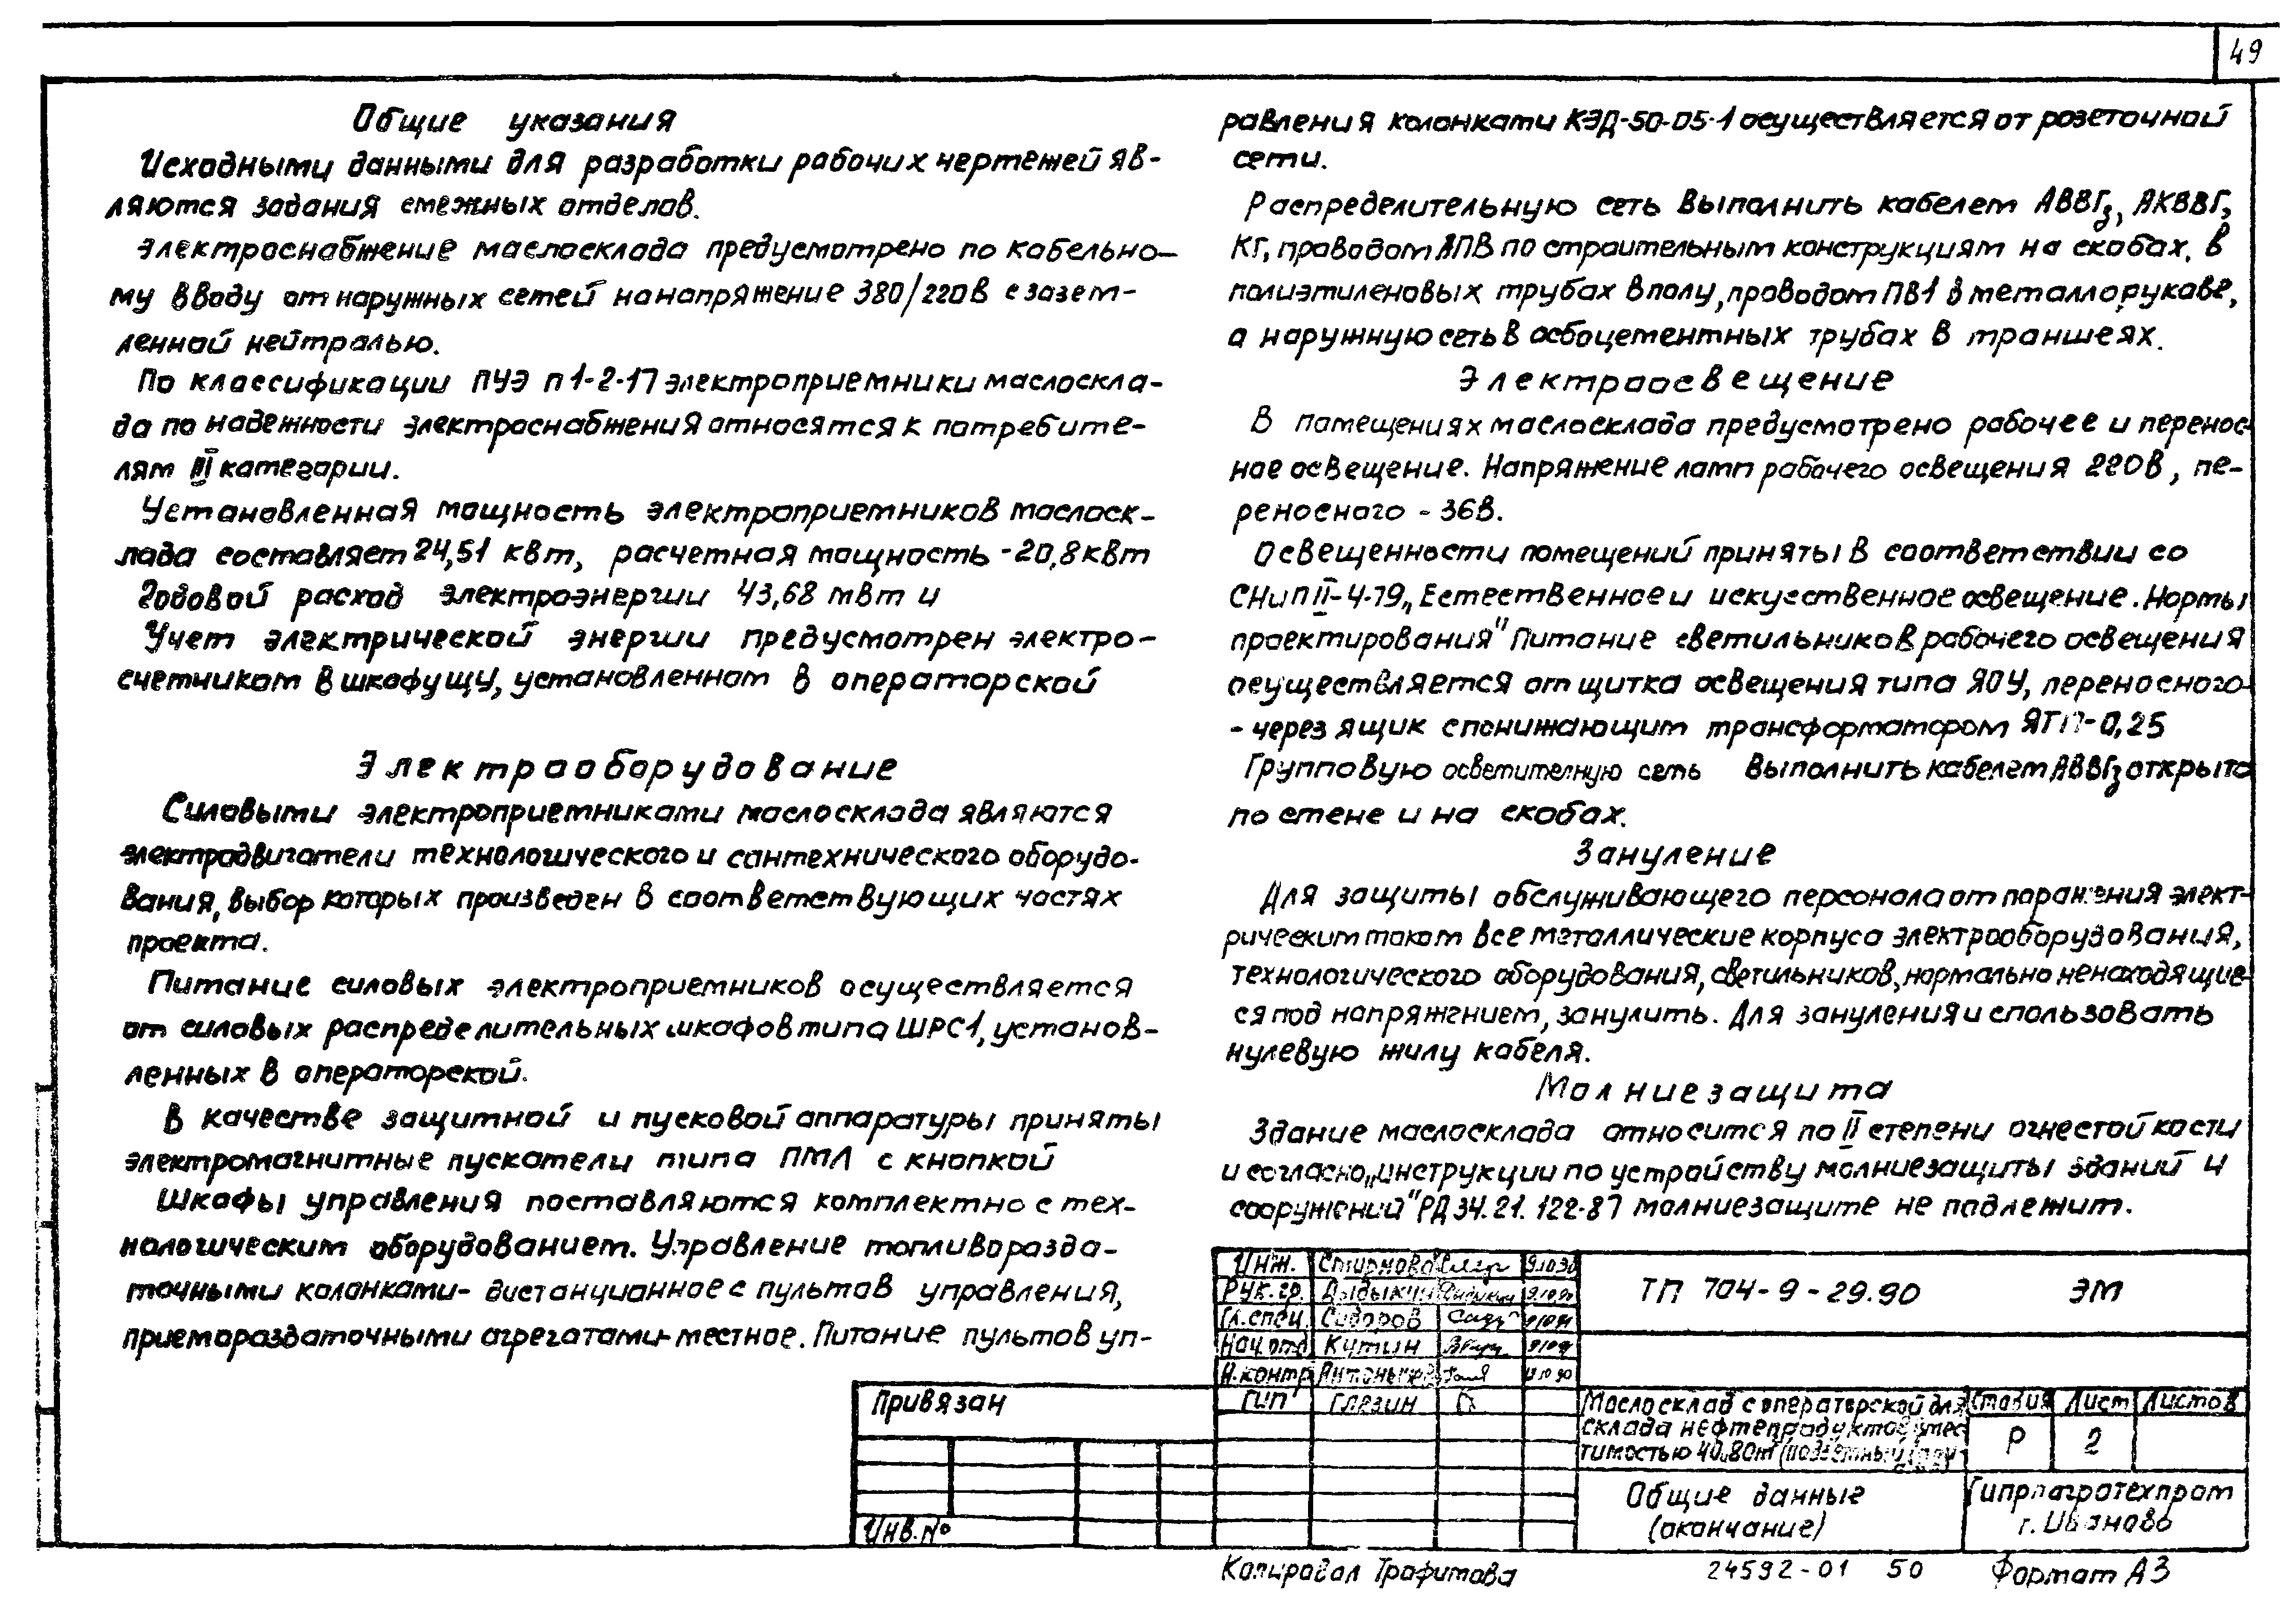 49
Общие указания
Исходными данными для разработки рабочих чертежей яв-
ляются задания смежных отделов.
Электроснабжение маслосклада предусмотрено по кабельно-
му вводу от наружных сетей на напряжение 380/220В с зазем-
ленной нейтралью.
По классификации ПУЭ п1-2-17 электроприемники маслоскла-
да по надежности электроснабжения относятся к потребите-
лям III категории.
Установленная мощность электроприемников маслоск-
лада составляет 24,51 квт, расчетная мощность -20,8квт
Годовой расход электроэнергии 43,68 мвт ч
Учет электрической энергии предусмотрен электро-
счетчиком в шкафу ЩУ, установленном в операторской
Электрооборудование
Силовыми электроприемниками маслосклада являются
электродвигатели технологического и сантехнического оборудо-
вания, выбор которых произведен в соответствующих частях
проекта.
Питание силовых электроприемников осуществляется
от силовых распределительных шкафов типа ШРС1, установ-
ленных в операторской.
В качестве защитной и пусковой аппаратуры приняты
электромагнитные пускатели типа ПМЛ с кнопкой
Шкафы управления поставляются комплектно с тех-
нологическим оборудованием. Управление топливоразда-
точными колонками- дистанционное с пультов управления,
приемораздаточными агрегатами- местное. Питание пультов уп-
равления колонками КЭД-50-05-1 осуществляется от розеточной
сети.
Распределительную сеть выполнить кабелем АВВГз, АКВВГ,
КГ, проводом АПВ по строительным конструкциям на скобах, в
полиэтиленовых трубах в полу, проводом ПВ1 в металлорукаве,
а наружную сеть в асбоцементных трубах в траншеях.
Электроосвещение
В помещениях маслосклада предусмотрено рабочее и перенос-
ное освещение. Напряжение ламп рабочего освещения 220В, пе-
реносного - 36В.
Освещенности помещений приняты в соответствии со
СНиП II-4-79 „Естественное и искусственное освещение. Нормы
проектирования" Питание светильников рабочего освещения
осуществляется от щитка освещения типа ЯОУ, переносного-
- через ящик с понижающим трансформатором ЯТП-0,25
Групповую осветителную сеть выполнить кабелем АВВГз открыто
по стене и на скобах.
Зануление
Для защиты обслуживающего персонала от поражения элект-
рическим током все металлические корпуса электрооборудования,
технологического оборудования, светильников, нормально ненаходящие-
ся под напряжением, занулить. Для зануления использовать
нулевую жилу кабеля.
Молниезащита
Здание маслосклада относится по II степени огнестойкости
и согласно „Инструкции по устройству молниезащиты зданий и
сооружений" РД 34.21.122-87 молниезащите не подлежит.
Инж. Смирнова
Рук.гр. Дыдыкин
Гл.спец. Сидоров
Нач.отд Кутин
Н.контр
ГИП Глезин
ТП 704-9-29.90 ЭМ
Привязан
Инв.№
Маслосклад с операторской для
склада нефтепродуктов вмес-
тимостью 40..80м³
Стадия Лист Листов
Р 2
Общие данные
(окончание)
Гипроагротехпром
г. Иваново
Копировал Трафимова 24592-01 50 Формат А3